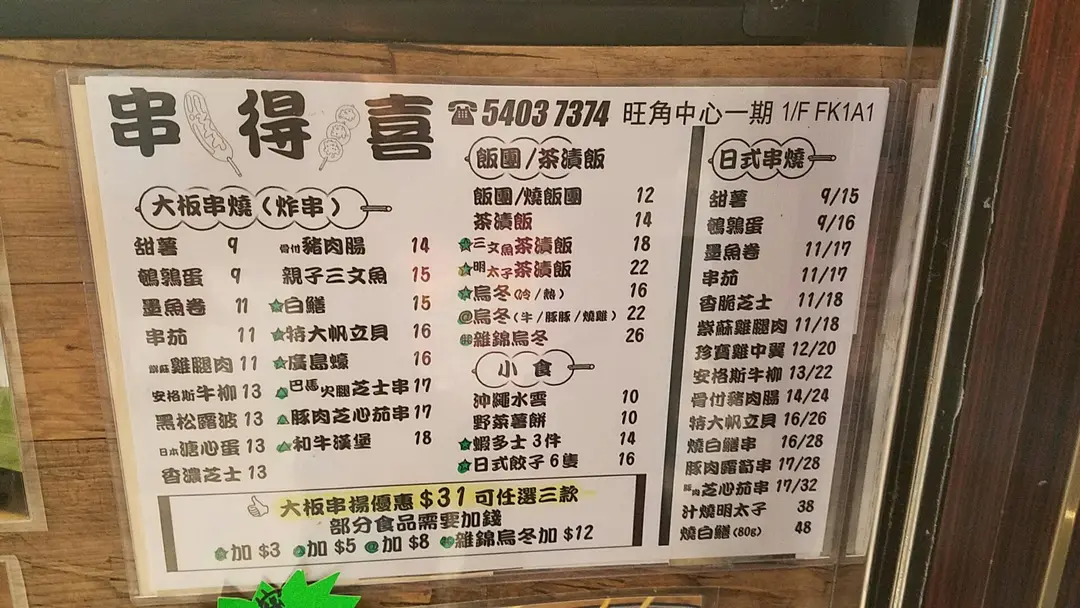 串得喜
☎5403 7374 旺角中心一期 1/F FK1A1
大板串燒(炸串)
甜薯 9
鵪鶉蛋 9
墨魚卷 11
串茄 11
紫蘇雞腿肉 11
安格斯牛柳 13
黑松露波 13
日本溏心蛋 13
香濃芝士 13
骨付豬肉腸 14
親子三文魚 15
白鱔 15
特大帆立貝 16
廣島蠔 16
巴馬火腿芝士串 17
豚肉芝心茄串 17
和牛漢堡 18
飯團/茶漬飯
飯團/燒飯團 12
茶漬飯 14
三文魚茶漬飯 18
明太子茶漬飯 22
烏冬(冷/熱) 16
烏冬(牛/豚豚/燒雞) 22
雜錦烏冬 26
小食
沖繩水雲 10
野菜薯餅 10
蝦多士3件 14
日式餃子6隻 16
日式串燒
甜薯 9/15
鵪鶉蛋 9/16
墨魚卷 11/17
串茄 11/17
香脆芝士 11/18
紫蘇雞腿肉 11/18
珍寶雞中翼 12/20
安格斯牛柳 13/22
骨付豬肉腸 14/24
特大帆立貝 16/26
燒白鱔串 16/28
豚肉露筍串 17/28
豚肉芝心茄串 17/32
汁燒明太子 38
燒白鱔(80g) 48
大板串揚優惠$31可任選三款
部分食品需要加錢
加$3 加$5 加$8 雜錦烏冬加$12